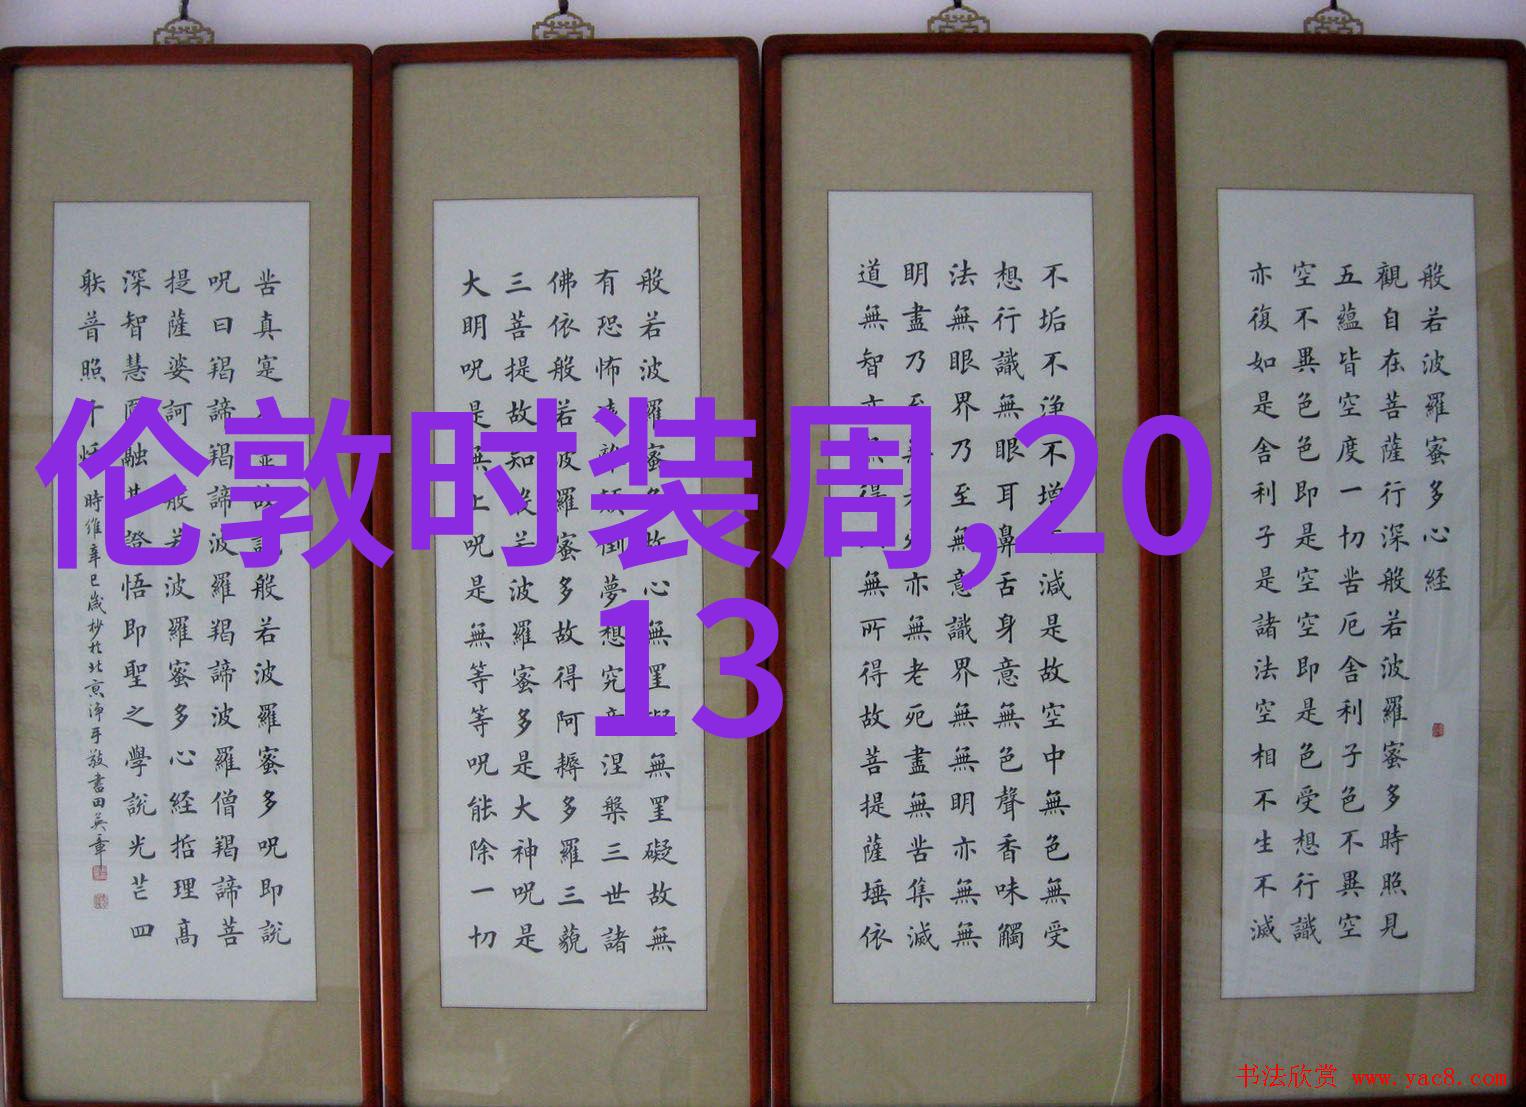 般若波羅蜜多心経
觀自在菩薩行深般若波羅蜜多時照見
五蘊皆空度一切苦厄舍利子色不異空
空不異色色即是空空即是色受想行識
亦復如是舍利子是諸法空相不生不滅
不垢不浄不增不減是故空中無色無受
想行識無眼耳鼻舌身意無色聲香味觸
法無眼界乃至無意識界無無明亦無無
明盡乃至無老死亦無老死盡無苦集滅
道無智亦無得以無所得故菩提薩埵依
般若波羅蜜多故心無罣礙無罣礙故無
有恐怖遠離顛倒夢想究竟涅槃三世諸
佛依般若波羅蜜多故得阿耨多羅三藐
三菩提故知般若波羅蜜多是大神呪是
大明呪是無上呪是無等等呪能除一切
苦真寔不虛故說般若波羅蜜多呪即說
呪曰羯諦羯諦波羅羯諦波羅僧羯諦菩
提薩婆訶般若波羅蜜多心経哲理高
深智慧圓融其證悟即聖之學說光芒四
躲普照千
時維辛巳歲杪於北京淨平敬書田英章
伦敦时装周,20
13
书法欣赏 www.yac8.com